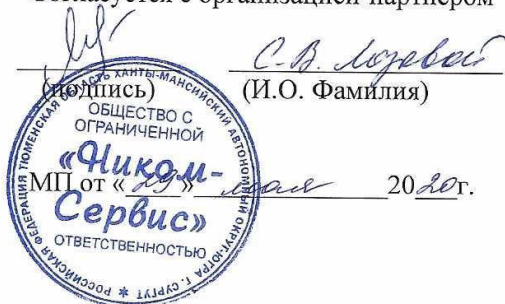 Согласуется с организацией-партнером
С.В. Лозевой
(подпись) (И.О. Фамилия)
РОССИЙСКАЯ ФЕДЕРАЦИЯ ТЮМЕНСКАЯ ОБЛАСТЬ ХАНТЫ-МАНСИЙСКИЙ АВТОНОМНЫЙ ОКРУГ-ЮГРА Г. СУРГУТ *
ОБЩЕСТВО С
ОГРАНИЧЕННОЙ
«Ником-
Сервис»
ОТВЕТСТВЕННОСТЬЮ
МП от «29» мая 2020г.